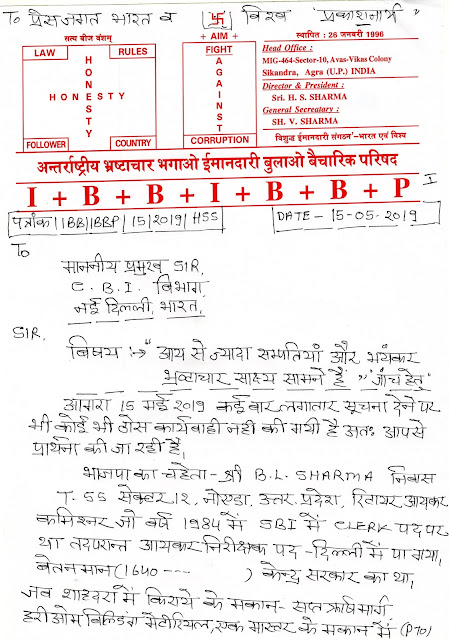 To प्रेस जगत भारत व 卐 विश्व "प्रकाशनार्थ"
सत्य बीज वंशम्
LAW RULES
HONESTY
HONESTY
FOLLOWER COUNTRY
+ AIM +
FIGHT
AGAINST
CORRUPTION
स्थापित : 26 जनवरी 1996
Head Office :
MIG-464-Sector-10, Avas-Vikas Colony
Sikandra, Agra (U.P.) INDIA
Director & President :
Sri. H. S. SHARMA
General Secreatary :
SH. V. SHARMA
विशुद्ध ईमानदारी संगठन'-भारत एवं विश्व
अन्तर्राष्ट्रीय भ्रष्टाचार भगाओ ईमानदारी बुलाओ बैचारिक परिषद
I + B + B + I + B + B + P
I
पत्रांक|IBB|IBBP|15|2019|HSS DATE - 15-05-2019
To
माननीय प्रमुख SIR,
C. B. I. विभाग,
नई दिल्ली, भारत,
SIR.
विषय :→ "आय से ज्यादा सम्पतियां और भयंकर
भ्रष्टाचार साक्ष्य सामने हैं" "जांच हेतु"
आगरा 15 मई 2019 कई बार लगातार सूचना देने पर
भी कोई भी ठोस कार्यवाही नही की गयी है अतः आपसे
प्रार्थना की जा रही है,
भाजपा का चहेता - श्री B.L. SHARMA निवास
T. 55 सेक्टर 12, नोएडा, उत्तर प्रदेश, रिटायर आयकर
कमिश्नर जो वर्ष 1984 में SBI में CLERK पद पर
था तदपरान्त आयकर निरीक्षक पद - दिल्ली में पा गया,
वेतनमान (1640 --- ) केन्द्र सरकार का था,
जब शाहदरा में किराये के मकान - सप्त ऋषि मार्ग
हरी ओम बिल्डिंग मेटीरियल, एक मास्टर के मकान में (PTO)